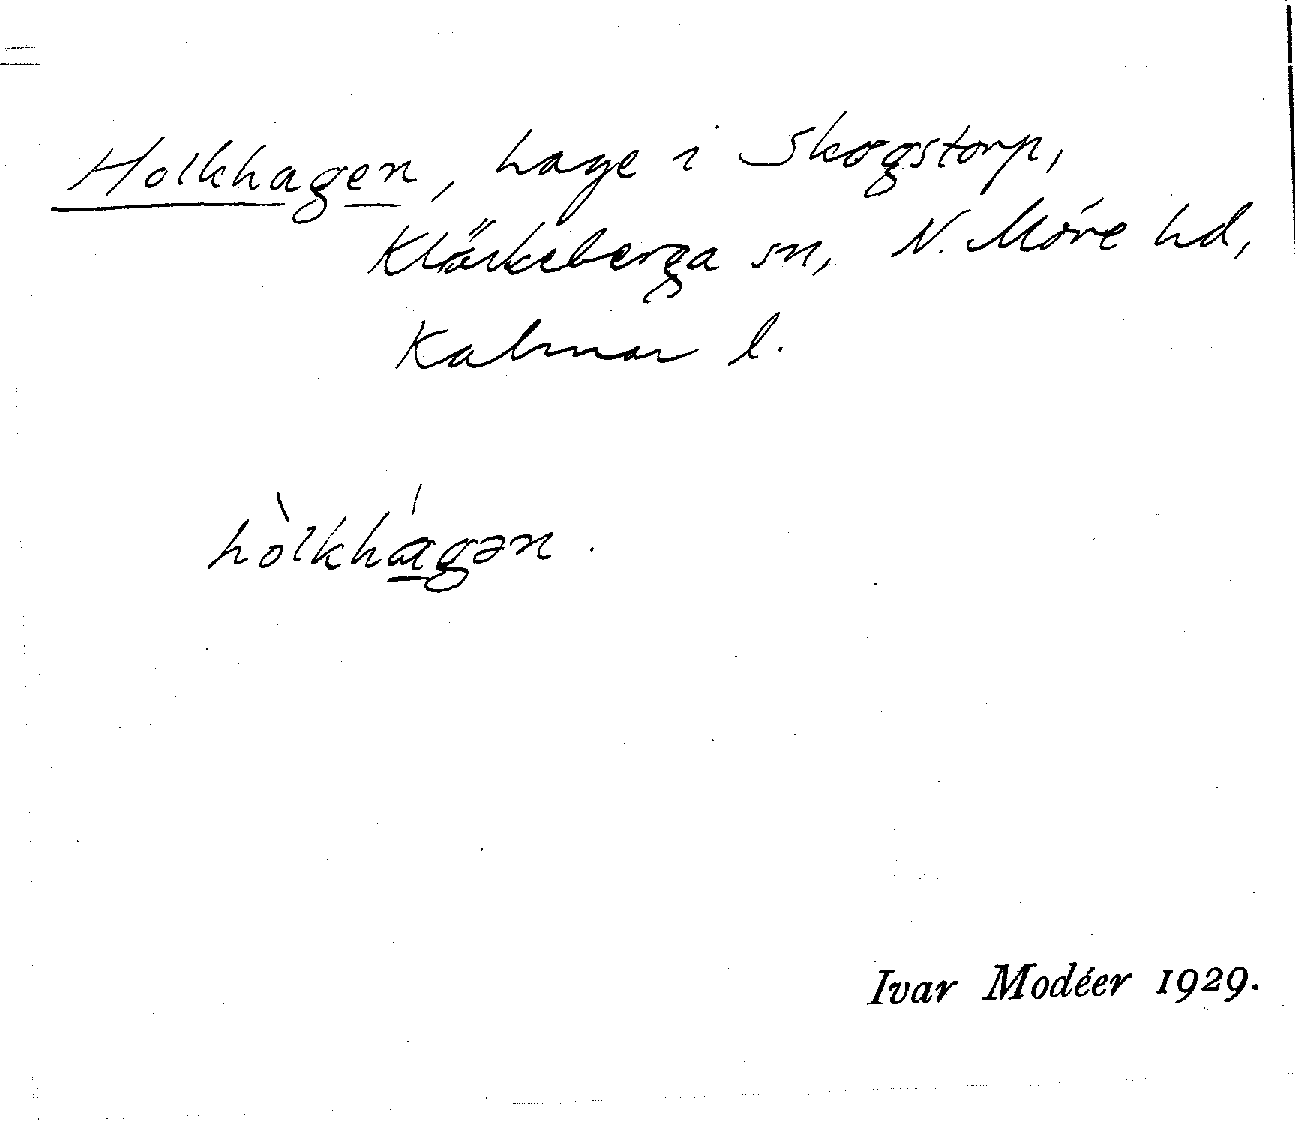 Holkhagen, hage i Skogstorp,
Kläckeberga sn, N. Möre hd,
Kalmar l.
hòlkhágən.
Ivar Modéer 1929.